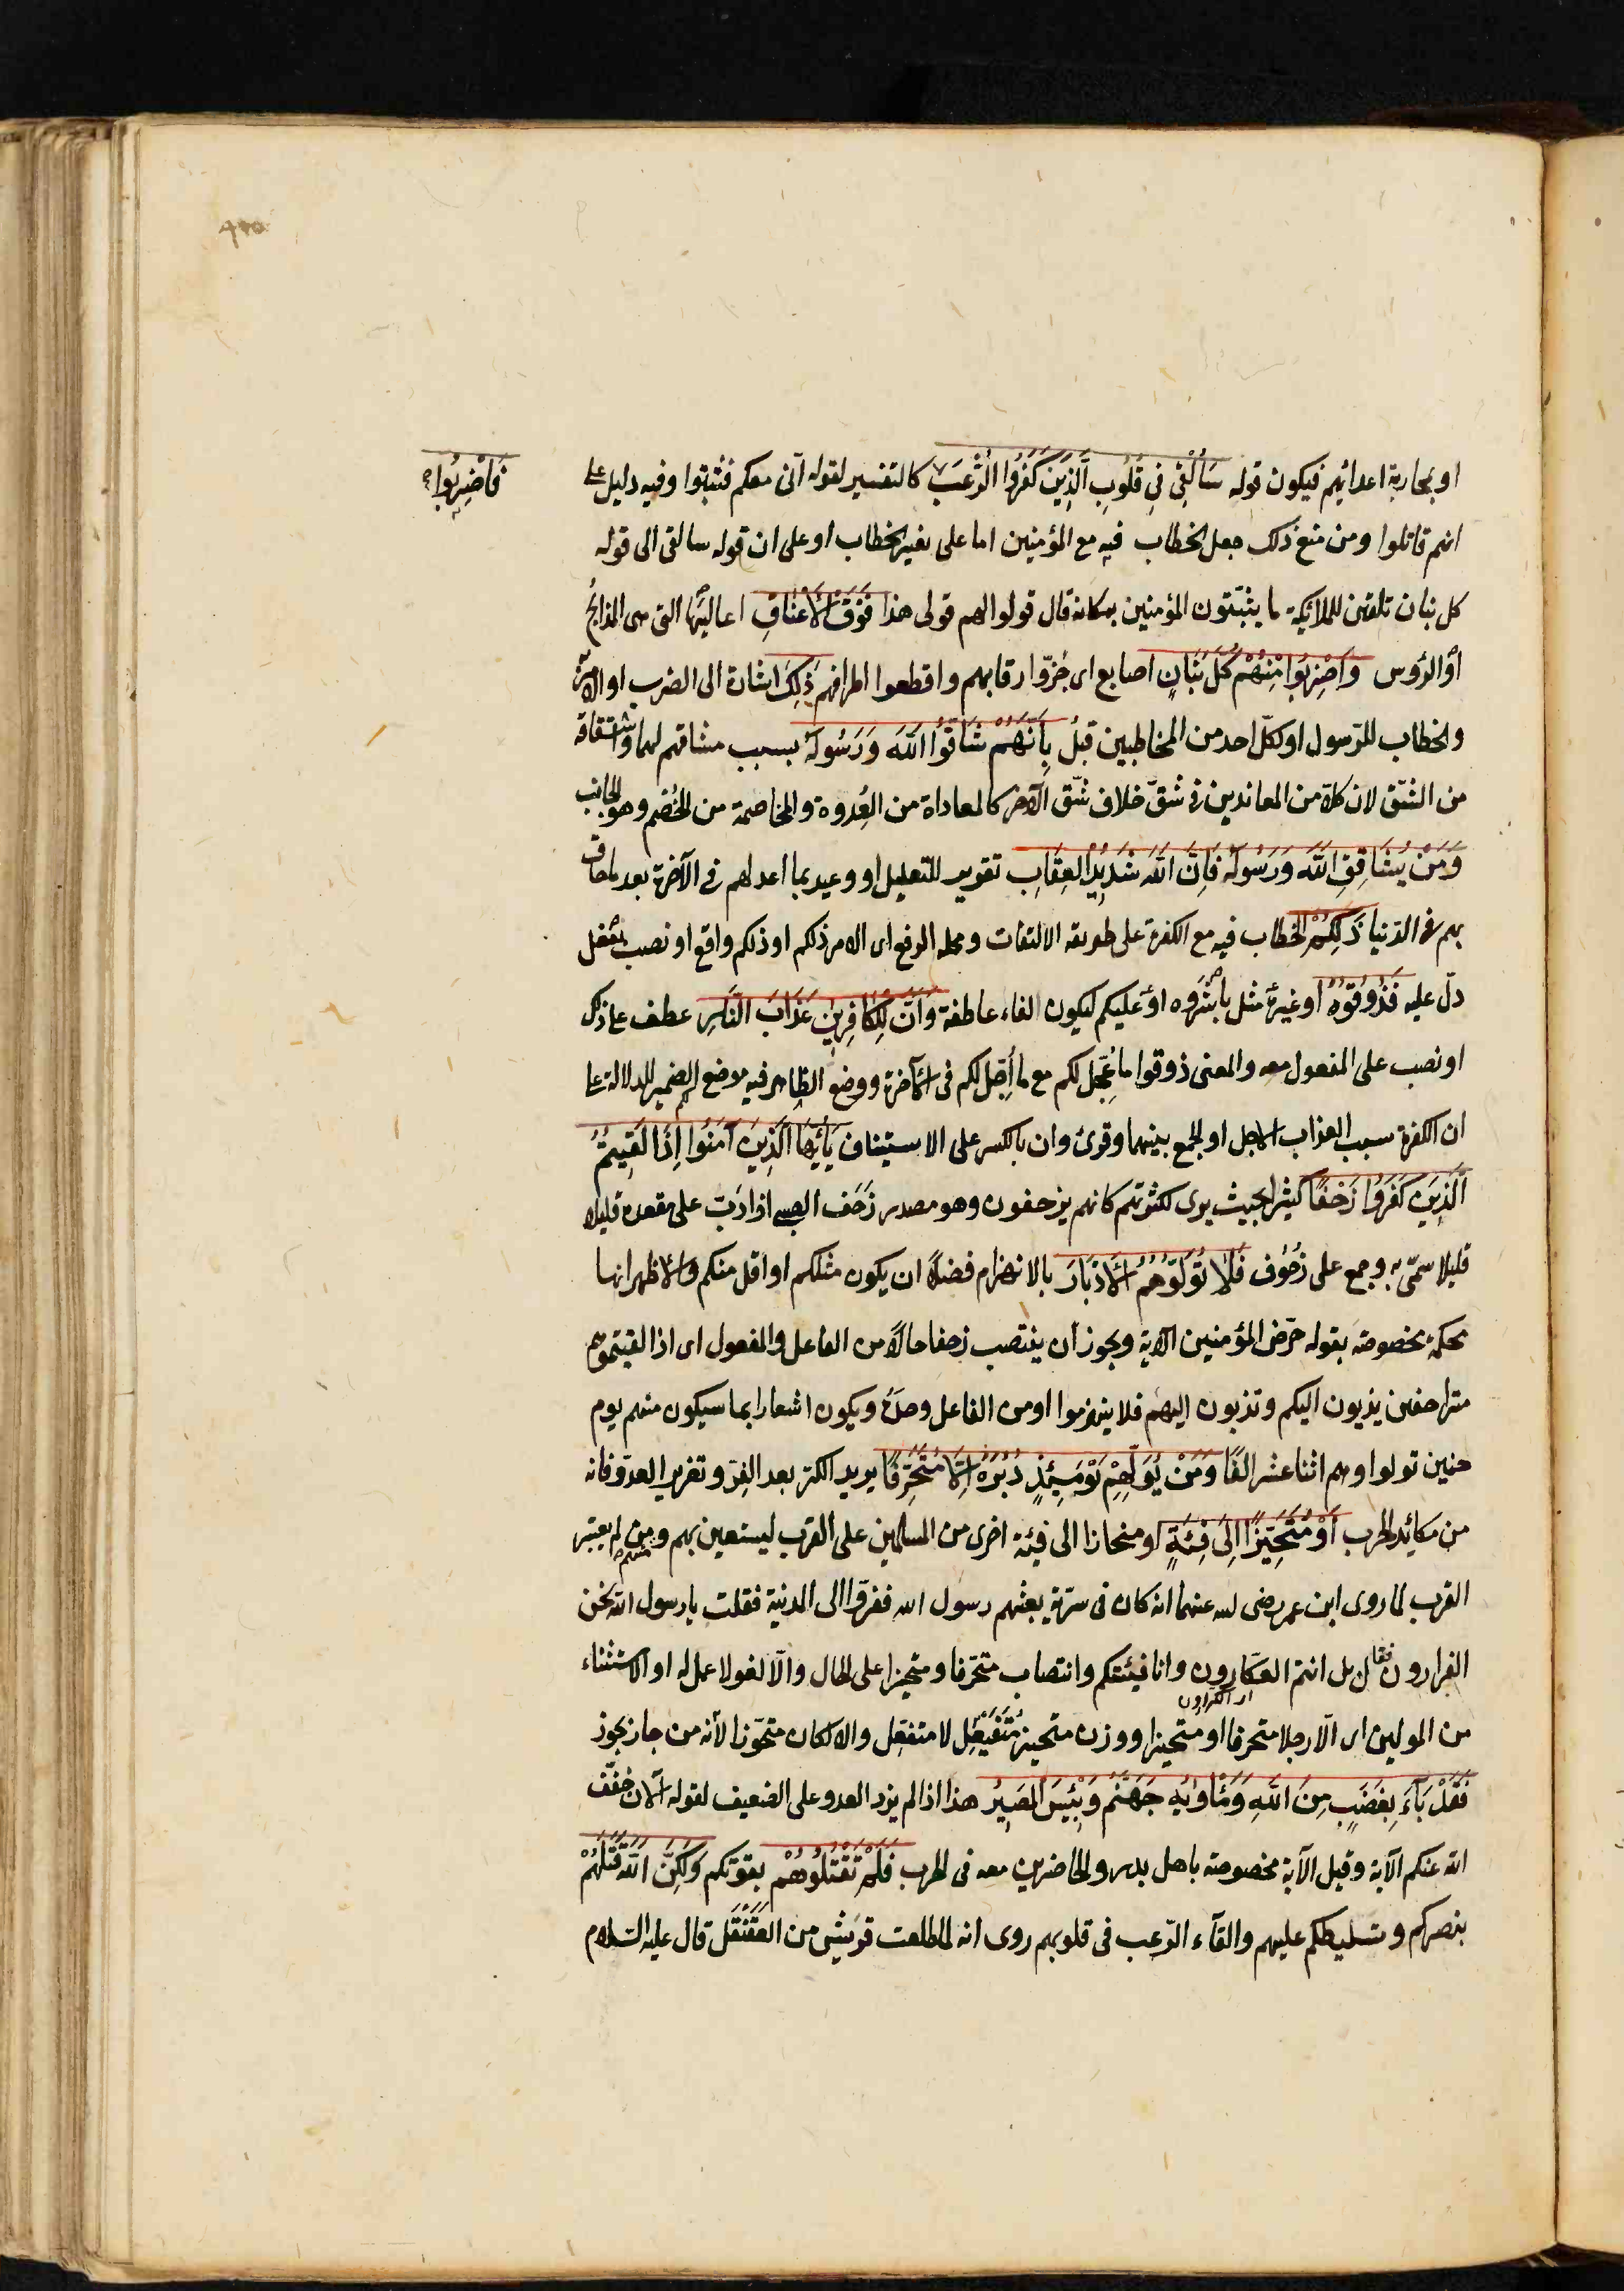 او بمحاربة اعدائهم فيكون قوله سَأُلْقِي فِي قُلُوبِ الَّذِينَ كَفَرُوا الرُّعْبَ كالتفسير لقوله انى معكم فثبتوا وفيه دليل على
فَاضْرِبُوا
انهم قاتلوا ومن منع ذلك جعل الخطاب فيه مع المؤمنين اما على تغيير الخطاب او على ان قوله سالقى الى قوله
كل بنان تلقين للملائكة ما يثبتون المؤمنين به كانه قال قولوا لهم قولى هذا فَوْقَ الْأَعْنَاقِ اعاليها التى هى المذابح
او الرؤس وَاضْرِبُوا مِنْهُمْ كُلَّ بَنَانٍ اصابع اى جزّوا رقابهم واقطعوا اطرافهم ذَلِكَ اشارة الى الضرب او الامر
والخطاب للرسول او لكل احد من المخاطبين قبل بِأَنَّهُمْ شَاقُّوا اللَّهَ وَرَسُولَهُ بسبب مشاقتهم لهما واشتقاقه
من الشق لان كلا من المعاندين فى شق خلاف شق الآخر كالمعاداة من العُدوة والمخاصمة من الخُصم وهو الجانب
وَمَنْ يُشَاقِقِ اللَّهَ وَرَسُولَهُ فَإِنَّ اللَّهَ شَدِيدُ الْعِقَابِ تقرير للتعليل او وعيد بما اعد لهم فى الآخرة بعد ما حاق
بهم فى الدنيا ذَلِكُمْ الخطاب فيه مع الكفرة على طريقة الالتفات ومحله الرفع اى الامر ذلكم او ذلكم واقع او نصب بفعل
دلّ عليه فَذُوقُوهُ او غيره مثل باشروه او عليكم ليكون الفاء عاطفة وَأَنَّ لِلْكَافِرِينَ عَذَابَ النَّارِ عطف على ذلكم
او نصب على المفعول معه والمعنى ذوقوا ما عُجّل لكم مع ما اُجّل لكم فى الآخرة ووضع الظاهر فيه موضع الضمير للدلالة على
ان الكفر سبب العذاب الآجل او الجمع بينهما وقرئ وان بالكسر على الاستيناف يَا أَيُّهَا الَّذِينَ آمَنُوا إِذَا لَقِيتُمُ
الَّذِينَ كَفَرُوا زَحْفًا كثيرا بحيث يرى لكثرتهم كانهم يزحفون وهو مصدر زَحَف الصبى اذا دَبّ على مقعده قليلا
قليلا سمّى به وجمع على زُحُوف فَلَا تُوَلُّوهُمُ الْأَدْبَارَ بالانهزام فضلاً ان يكون مثلكم او اقل منكم والاظهر انها
محكمة مخصوصة بقوله حرّض المؤمنين الآية ويجوز أن ينتصب زحفا حالاً من الفاعل والمفعول اى اذا لقيتموهم
متزاحفين يدبون اليكم وتدبون اليهم فلا ينهزموا او من الفاعل وحده ويكون اشعارا بما سيكون منهم يوم
حنين تولوا وهم اثنا عشر الفًا وَمَنْ يُوَلِّهِمْ يَوْمَئِذٍ دُبُرَهُ إِلَّا مُتَحَرِّفًا يريد الكرّ بعد الفِرّ وتغرير العدوّ فانه
من مكائد الحرب أَوْ مُتَحَيِّزًا إِلَى فِئَةٍ او منحازا الى فئة اخرى من المسلمين على القرب ليستعين بهم ومنهم من لم يعتبر
القرب لما روى ابن عمر رضى الله عنهما انه كان فى سرية بعثهم رسول الله ففرّوا الى المدينة فقلت يا رسول الله نحن
الفرارون فقال بل انتم العكارون وانا فيئتكم وانتصاب متحرّفا ومتحيزا على الحال والّا لغو لا عمل له او الاستثناء
اى الكرارون
من المولين اى الّا رجلا متحرفا او متحيزا ووزن متحيز مُتَفَيْعِل لا متفعّل والا لكان متحوّزا لأنه من حاز يحوز
فَقَدْ بَاءَ بِغَضَبٍ مِنَ اللَّهِ وَمَأْوَاهُ جَهَنَّمُ وَبِئْسَ الْمَصِيرُ هذا اذا لم يزد العدو على الضعيف لقوله الآن خفّف
الله عنكم الآية وقيل الآية مخصوصة باهل بدر والحاضرين معه فى الحرب فَلَمْ تَقْتُلُوهُمْ بقوتكم وَلَكِنَّ اللَّهَ قَتَلَهُمْ
بنصركم وتسليطكم عليهم والقاء الرّعب فى قلوبهم روى انه لما طلعت قريش من العَقَنْقَل قال عليه السلام